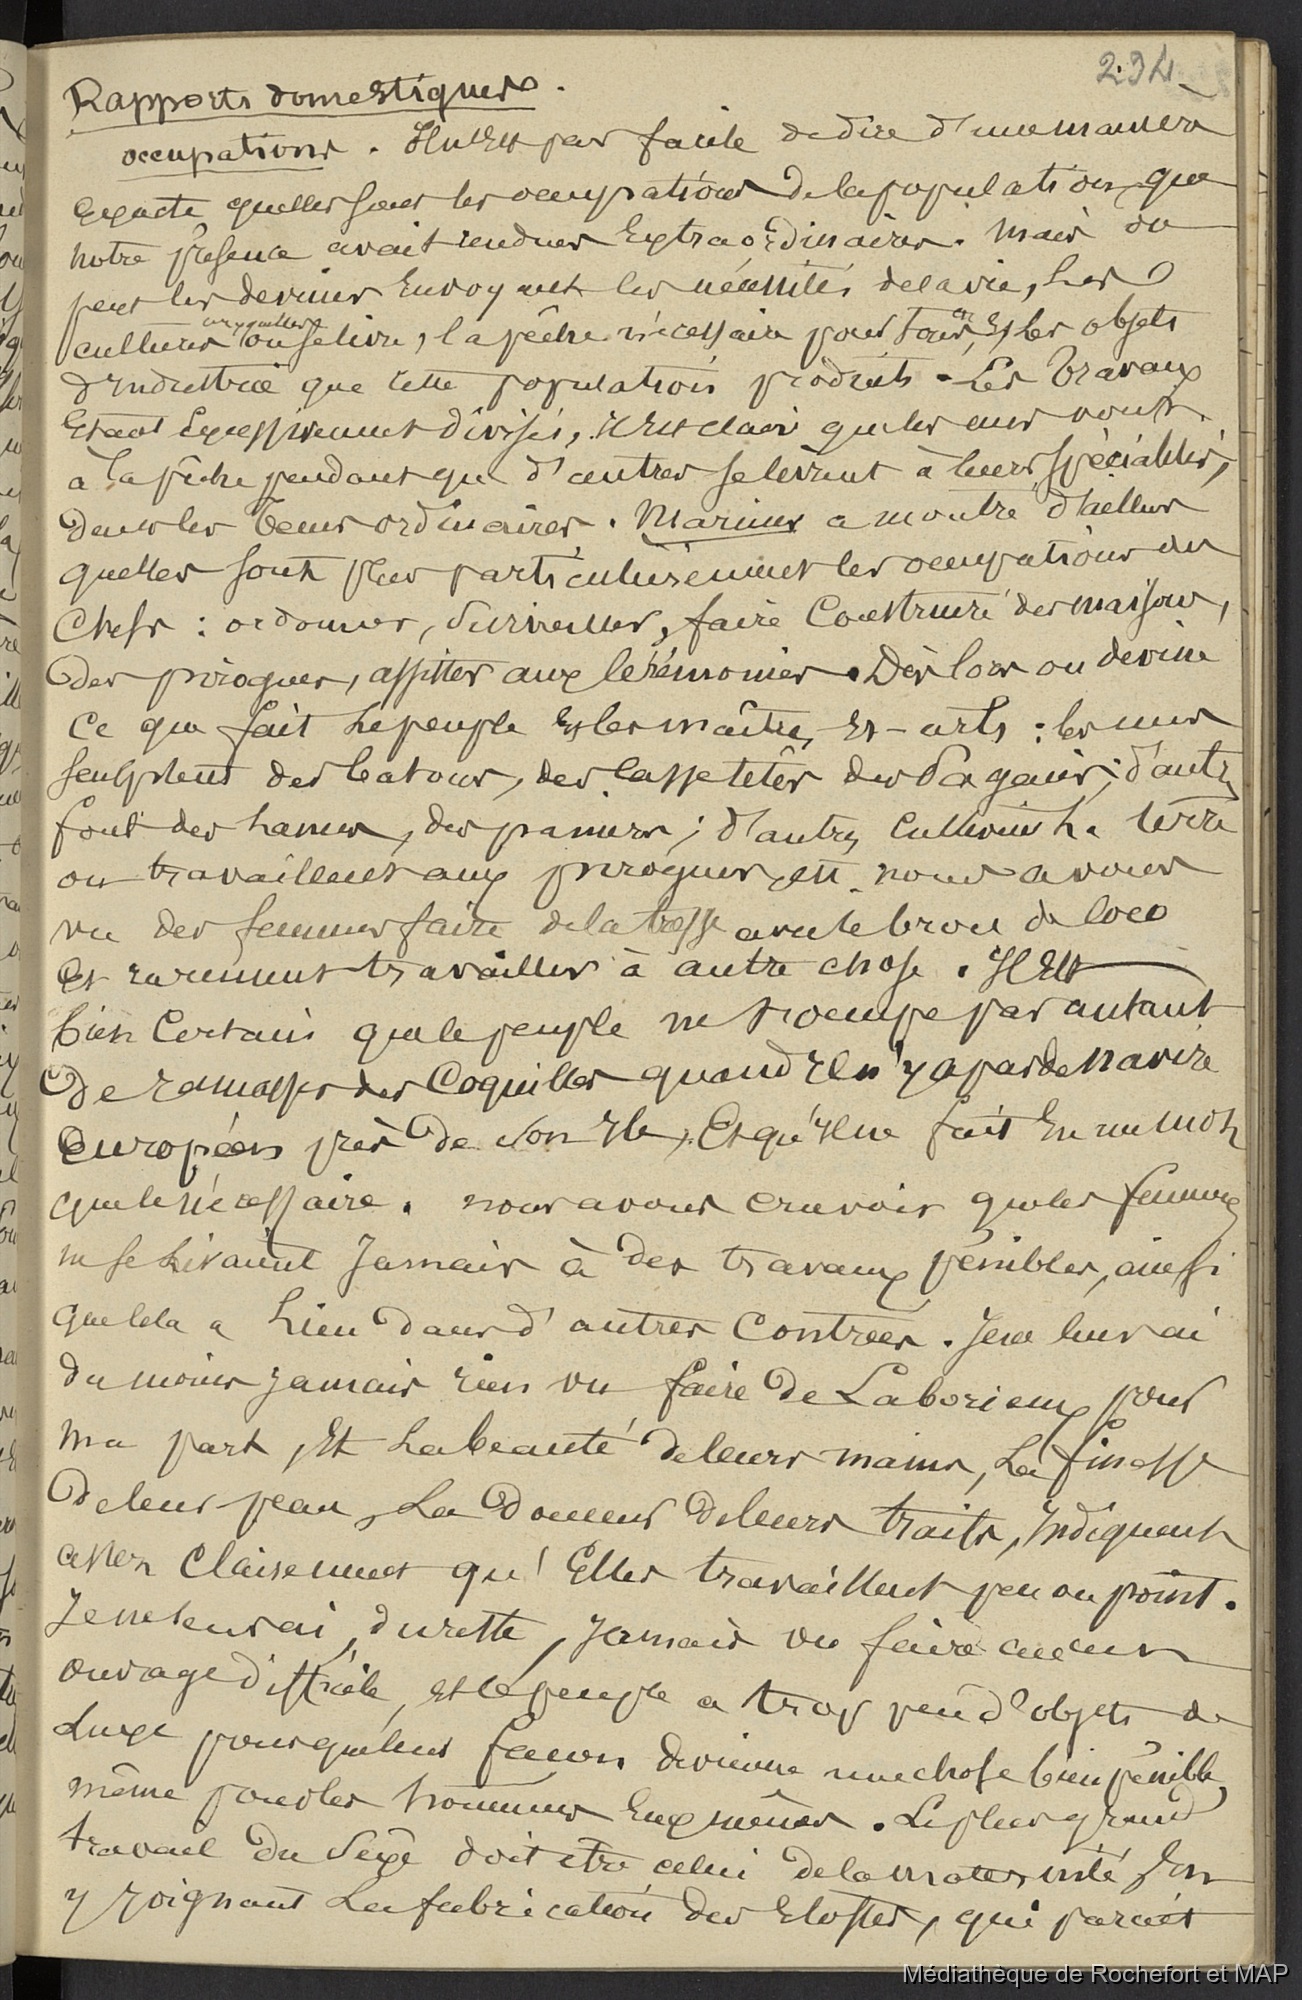 234
Rapports domestiques.
occupations. Il n'est pas facile de dire d'une manière
exacte quelles sont les occupations de la population, que
notre présence avait rendues extraordinaires. Mais on
peut les deviner en voyant les nécessités de la vie, les
cultures auxquelles on se livre, la pêche nécessaire pour tous, et les objets
d'industrie que cette population produit. Les travaux
étant excessivement divisés, il est clair que les uns vont
à la pêche pendant que d'autres se livrent à leurs spécialités,
dans les tems ordinaires. Mariner a montré d'ailleurs
quelles sont plus particulièrement les occupations des
chefs : ordonner, surveiller, faire construire des maisons,
des pirogues, assister aux cérémonies. Dès lors on devine
ce que fait le peuple et les maîtres ès-arts : les uns
sculptent des batons, des casse têtes des pagaies ; d'autres
font des hanes, des paniers ; d'autres cultivent la terre
ou travaillent aux pirogues, etc. nous avons
vu des femmes faire de la tresse avec le brou de coco
et rarement travailler à autre chose. Il est
bien certain que le peuple ne s'occupe pas autant
de ramasser des coquilles quand il n'y a pas de navire
européen près de son île, et qu'il ne fait en un mot
que le nécessaire. nous avons cru voir que les femmes
ne se livraient jamais à des travaux pénibles, ainsi
que cela a lieu dans d'autres contrées. Je ne leur ai
du moins jamais rien vu faire de laborieux pour
ma part, et la beauté de leurs mains, la finesse
de leur peau, la douceur de leurs traits, indiquent
assez clairement qu'elles travaillent peu ou point.
Je ne leur ai, du reste, jamais vu faire aucun
ouvrage difficile, et le peuple a trop peu d'objets de
luxe pour que leur façon devienne une chose bien pénible,
même pour les hommes eux mêmes. Le plus grand
travail du sexe doit être celui de la maternité en
y joignant la fabrication des étoffes, qui parait
Médiathèque de Rochefort et MAP